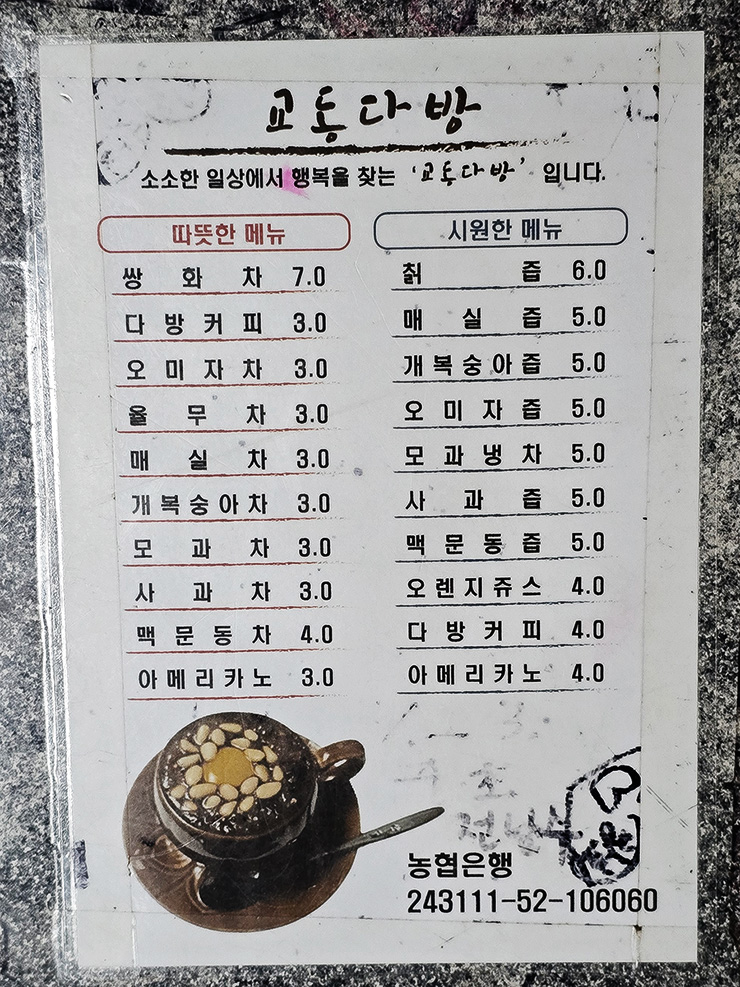 교동다방
소소한 일상에서 행복을 찾는 '교동다방' 입니다.
따뜻한 메뉴
쌍화차 7.0
다방커피 3.0
오미자차 3.0
율무차 3.0
매실차 3.0
개복숭아차 3.0
모과차 3.0
사과차 3.0
맥문동차 4.0
아메리카노 3.0
시원한 메뉴
칡즙 6.0
매실즙 5.0
개복숭아즙 5.0
오미자즙 5.0
모과냉차 5.0
사과즙 5.0
맥문동즙 5.0
오렌지쥬스 4.0
다방커피 4.0
아메리카노 4.0
농협은행
243111-52-106060